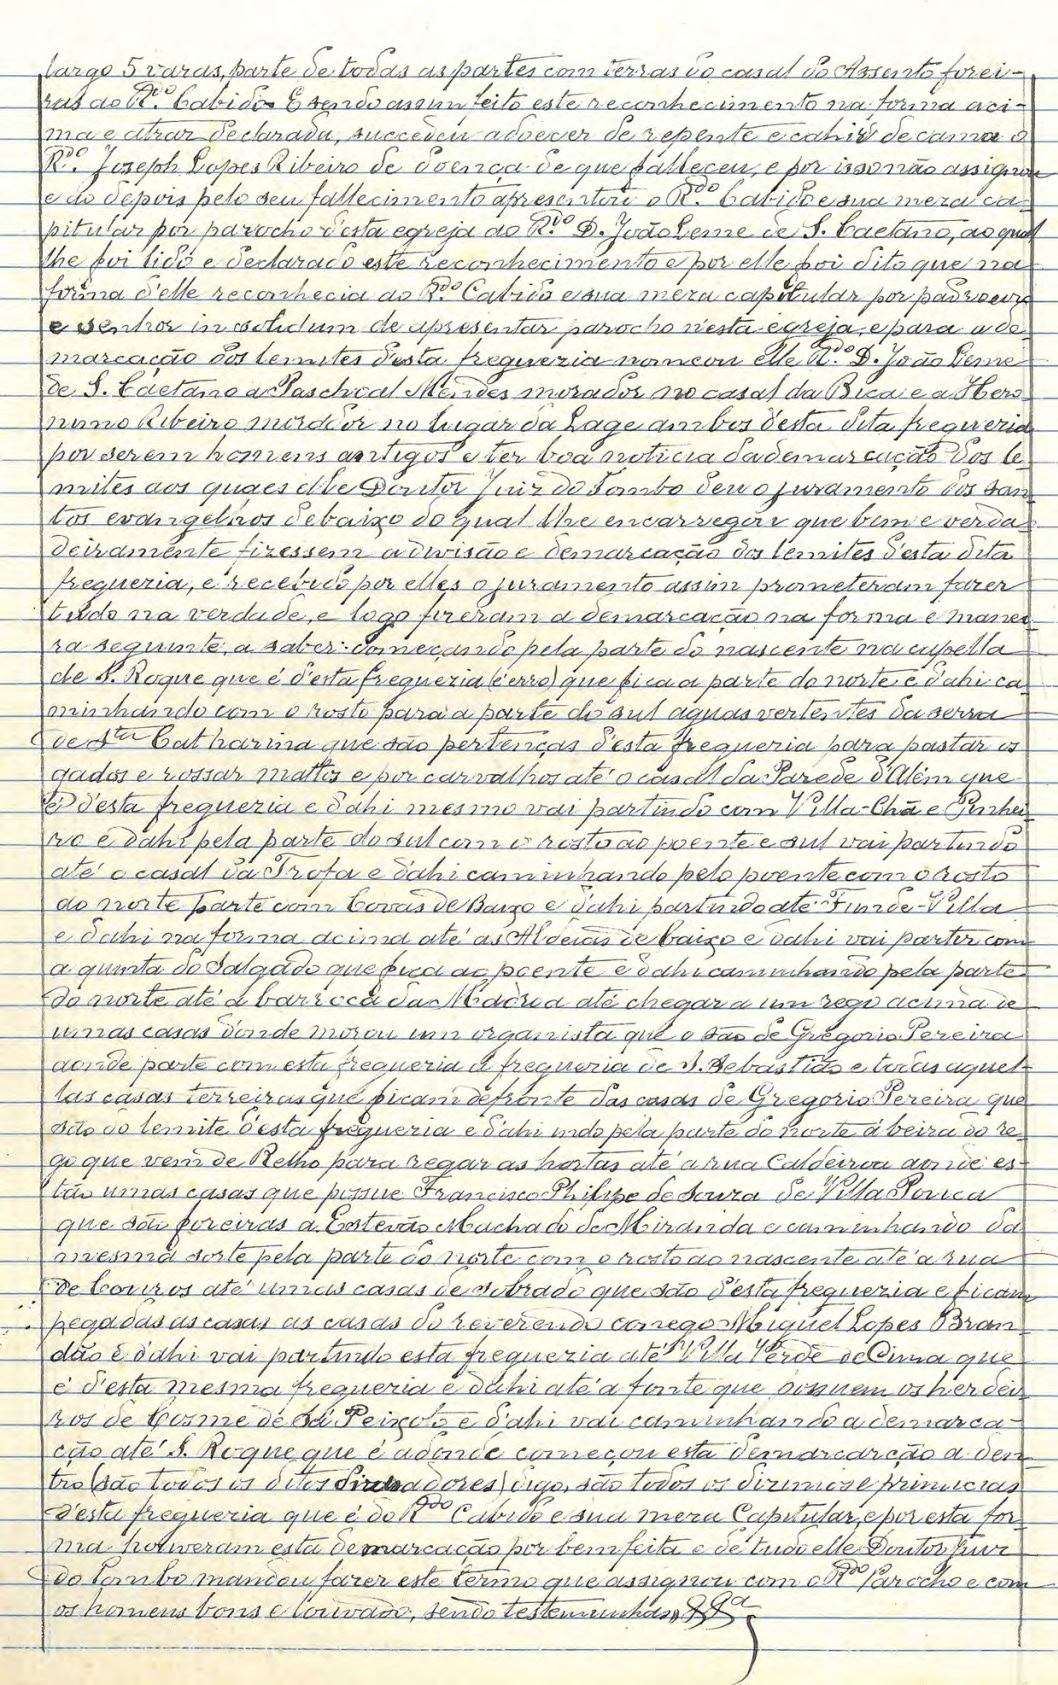 largo 5 varas, parte de todas as partes com terras do casal do Assento forei-
ras ao R.do Cabido. E sendo assim feito este reconhecimento na forma aci-
ma e atraz declarada, succedeu adoecer de repente e cahir de cama o
R.do Joseph Lopes Ribeiro de doença de que falleceu, e por isso não assignou
e ao depois pelo seu fallecimento apresentou o R.do Cabido e sua meza ca-
pitular por parocho d'esta egreja ao R.do D. João Leme de S. Caetano, ao qual
lhe foi lido e declarado este reconhecimento e por elle foi dito que na
forma d'elle reconhecia ao R.do Cabido e sua meza capitular por padroeiro
e senhor in solidum de apresentar parocho n'esta egreja, e para a de-
marcação dos lemites d'esta freguezia nomeou elle R.do D. João Leme
de S. Caetano a Paschoal Mendes morador no casal da Bica e a Hero-
nimo Ribeiro morador no lugar da Lage ambos d'esta dita freguezia
por serem homens antigos e ter boa noticia da demarcação dos le-
mites aos quaes elle Doutor Juiz do Tombo deu o juramento dos san-
tos evangelhos debaixo do qual lhe encarregou que bem e verda-
deiramente fizessem a divisão e demarcação dos lemites d'esta dita
freguezia, e recebido por elles o juramento assim prometeram fazer
tudo na verdade, e logo fizeram a demarcação na forma e manei-
ra seguinte, a saber: começando pela parte do nascente na capella
de S. Roque que é d'esta freguezia (é erro) que fica a parte do norte e d'ahi ca-
minhando com o rosto para a parte do sul aguas vertentes da serra
de S.ta Catharina que são pertenças d'esta freguezia para pastar os
gados e rossar mattos e por carvalhos até o casal da Parede d'Além que
é d'esta freguezia e d'ahi mesmo vai partindo com Villa-Chã e Pinhei-
ro e d'ahi pela parte do sul com o rosto ao poente e sul vai partindo
até o casal da Trofa e d'ahi caminhando pelo poente com o rosto
ao norte parte com Covas de Baixo e d'ahi partindo até Fundo-Villa
e d'ahi na forma acima até as Aldeias de Caixo e d'ahi vai partir com
a quinta do Salgado que fica ao poente e d'ahi caminhando pela parte
do norte até á barroca da Madria até chegar a um rego acima de
umas casas d'onde morou um organista que o são de Gregorio Pereira
aonde parte com esta freguezia a freguezia de S. Sebastião e todas aquel-
las casas terreiras que ficam defronte das casas de Gregorio Pereira que
são do lemite d'esta freguezia e d'ahi indo pela parte do norte á beira do re-
go que vem de Relho para regar as hortas até a rua Caldeiroa aonde es-
tão umas casas que possue Francisco Philipe de Souza de Villa Pouca
que são foreiras a Estevão Machado de Miranda e caminhando da
mesma sorte pela parte do norte com o rosto ao nascente até a rua
de Couros até umas casas de sobrado que são d'esta freguezia e ficam
pegadas as casas as casas do reverendo conego Miguel Lopes Bran-
dão e d'ahi vai partindo esta freguezia até Villa Verde de Cima que
é d'esta mesma freguezia e d'ahi até a fonte que possuem os herdei-
ros de Cosme de Sá Peixoto e d'ahi vai caminhando a demarca-
ção até S. Roque que é adonde começou esta demarcarção a den-
tro (são todos os ditos) digo, são todos os dizimos e primicias
d'esta freguezia que é do R.do Cabido e sua meza Capitular, e por esta for-
ma houveram esta demarcação por bem feita e de tudo elle Doutor Juiz
do Tombo mandou fazer este termo que assignou com o R.do Parocho e com
os homens bons e louvado, sendo testemunhas